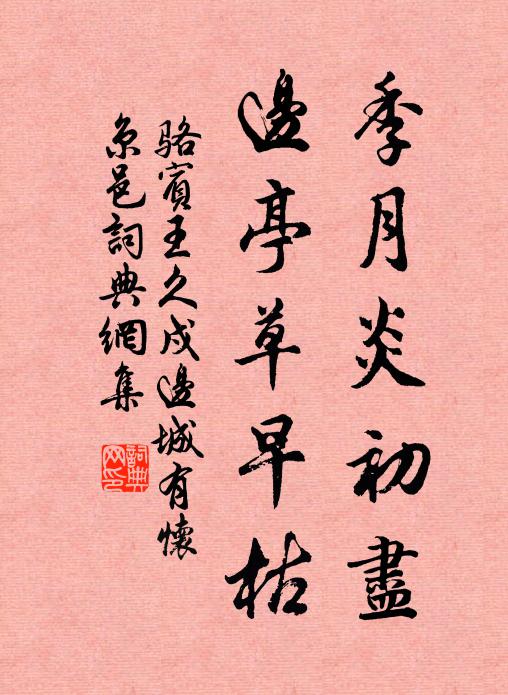 季月炎初盡
邊亭草早枯
駱賓王久戍邊城有懷
京邑詞典網集
詞典
网印